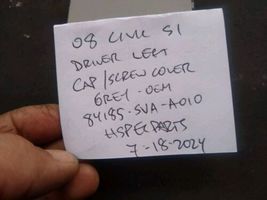 08 CIVIC SI
DRIVER LEFT
CAP/SCREW COVER
GREY - OEM
84185-SVA-A010
HSPECPARTS
7-18-2024